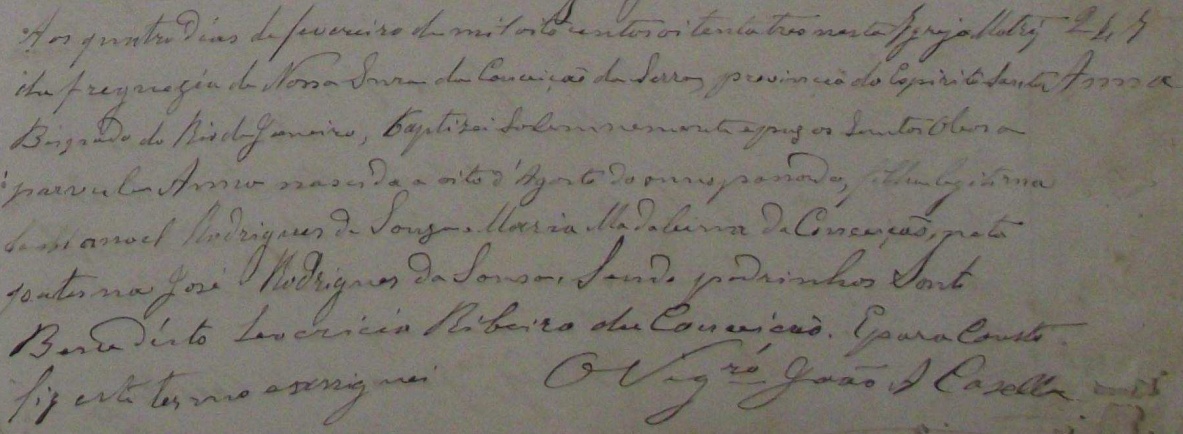 Aos quatro dias de fevereiro de mil oito centos oitenta tres nesta Igreja Matriz
da freguezia de Nossa Snra da Conceição da Serra, provincia do Espirito Santo Anna
Bispado do Rio de Janeiro, baptizei Solemnemente e puz os Santos Oleos a
parvula Anna nascida a oito d'Agosto do anno passado, filha legitima
de Manoel Rodrigues de Souza e Maria Madaleina da Conceição, neta
paterna José Rodrigues da Sousa. Sendo padrinhos Sant
Benedicto Ribeiro da Conceição. E para Constar
fiz este termo e assignei O Vigrō João A Casella